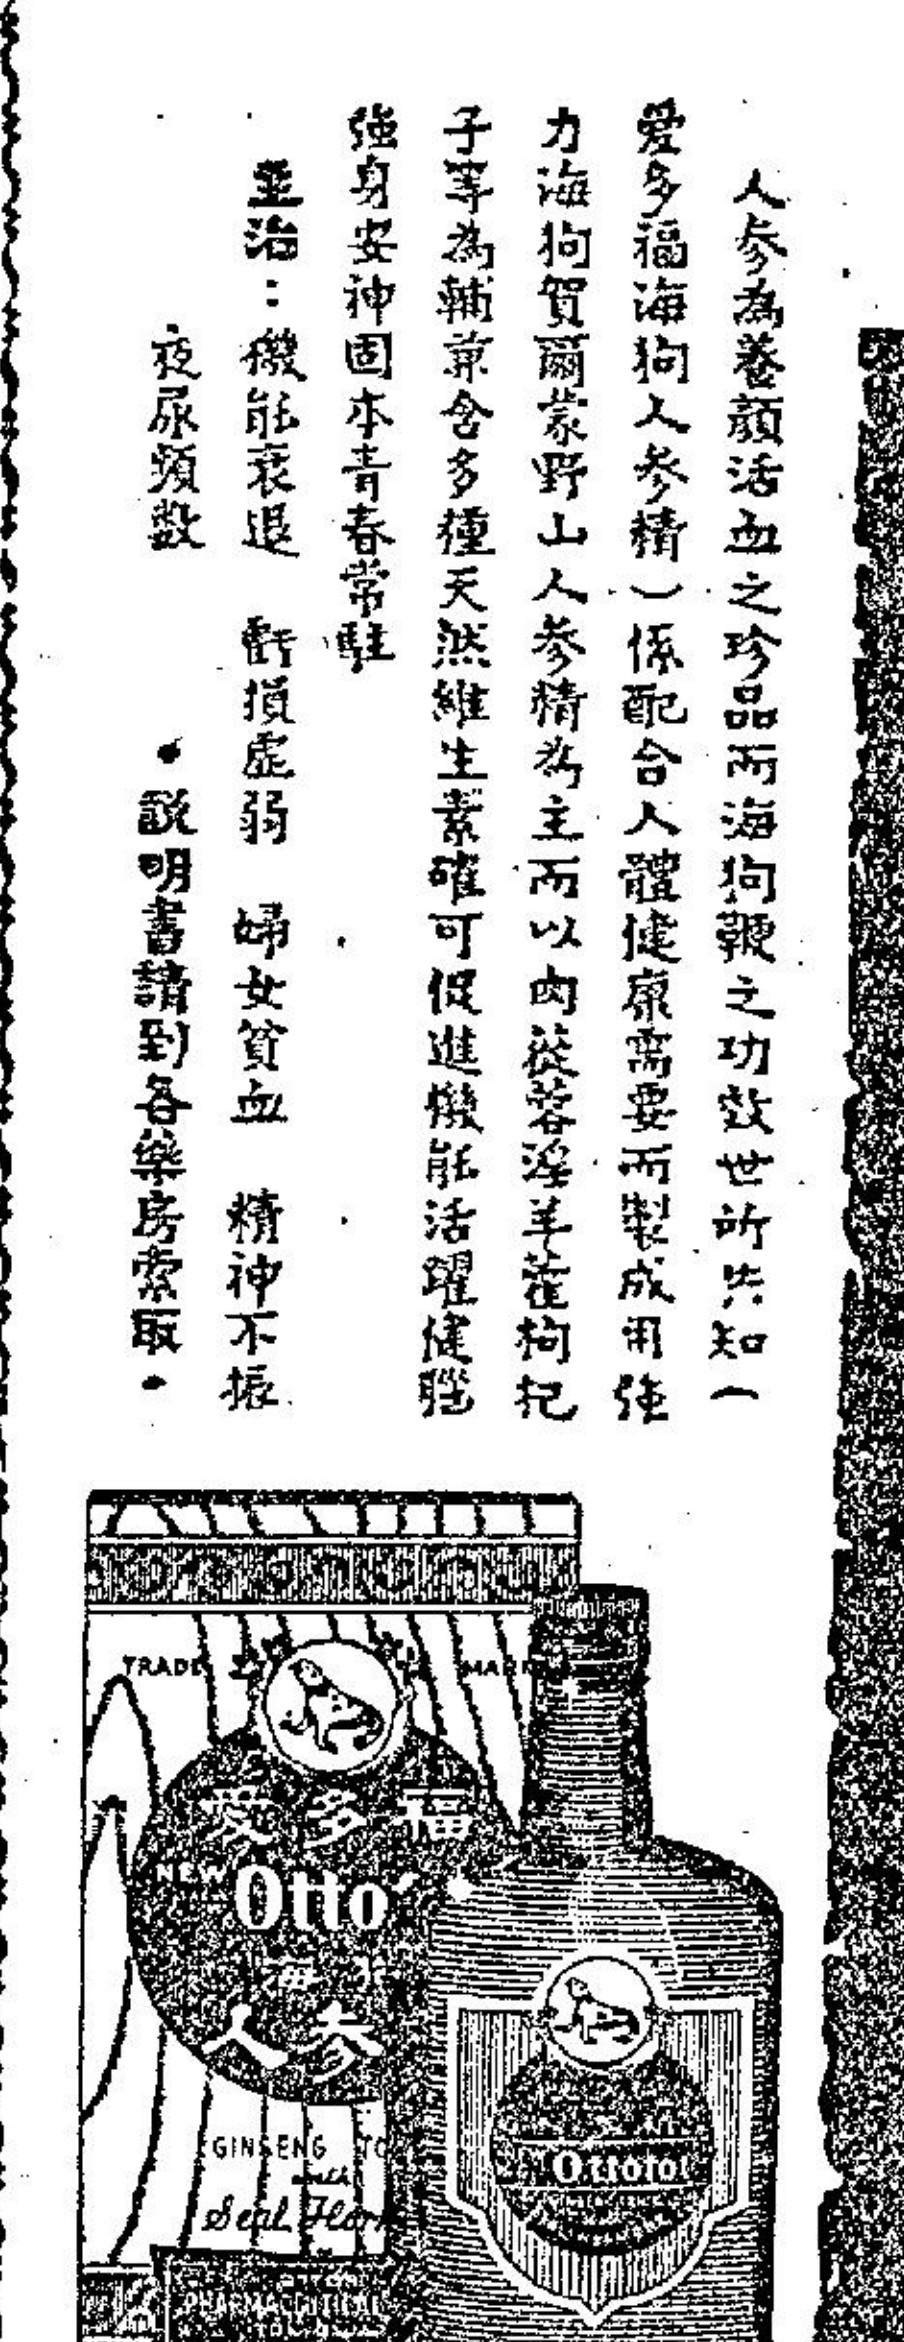 人參為養顏活血之珍品而海狗鞭之功效世所共知(
愛多福海狗人參精)係配合人體健康需要而製成用強
力海狗賀爾蒙野山人參精為主而以肉蓯蓉淫羊藿枸杞
子等為輔兼含多種天然維生素確可促進機能活躍健腦
強身安神固本青春常駐
主治：機能衰退 虧損虛弱 婦女貧血 精神不振
夜尿頻數 •說明書請到各藥房索取•
TRADE MARK
愛多福
NEW Otto
海
人參
GINSENG
Seal
PHARMACEUTICAL